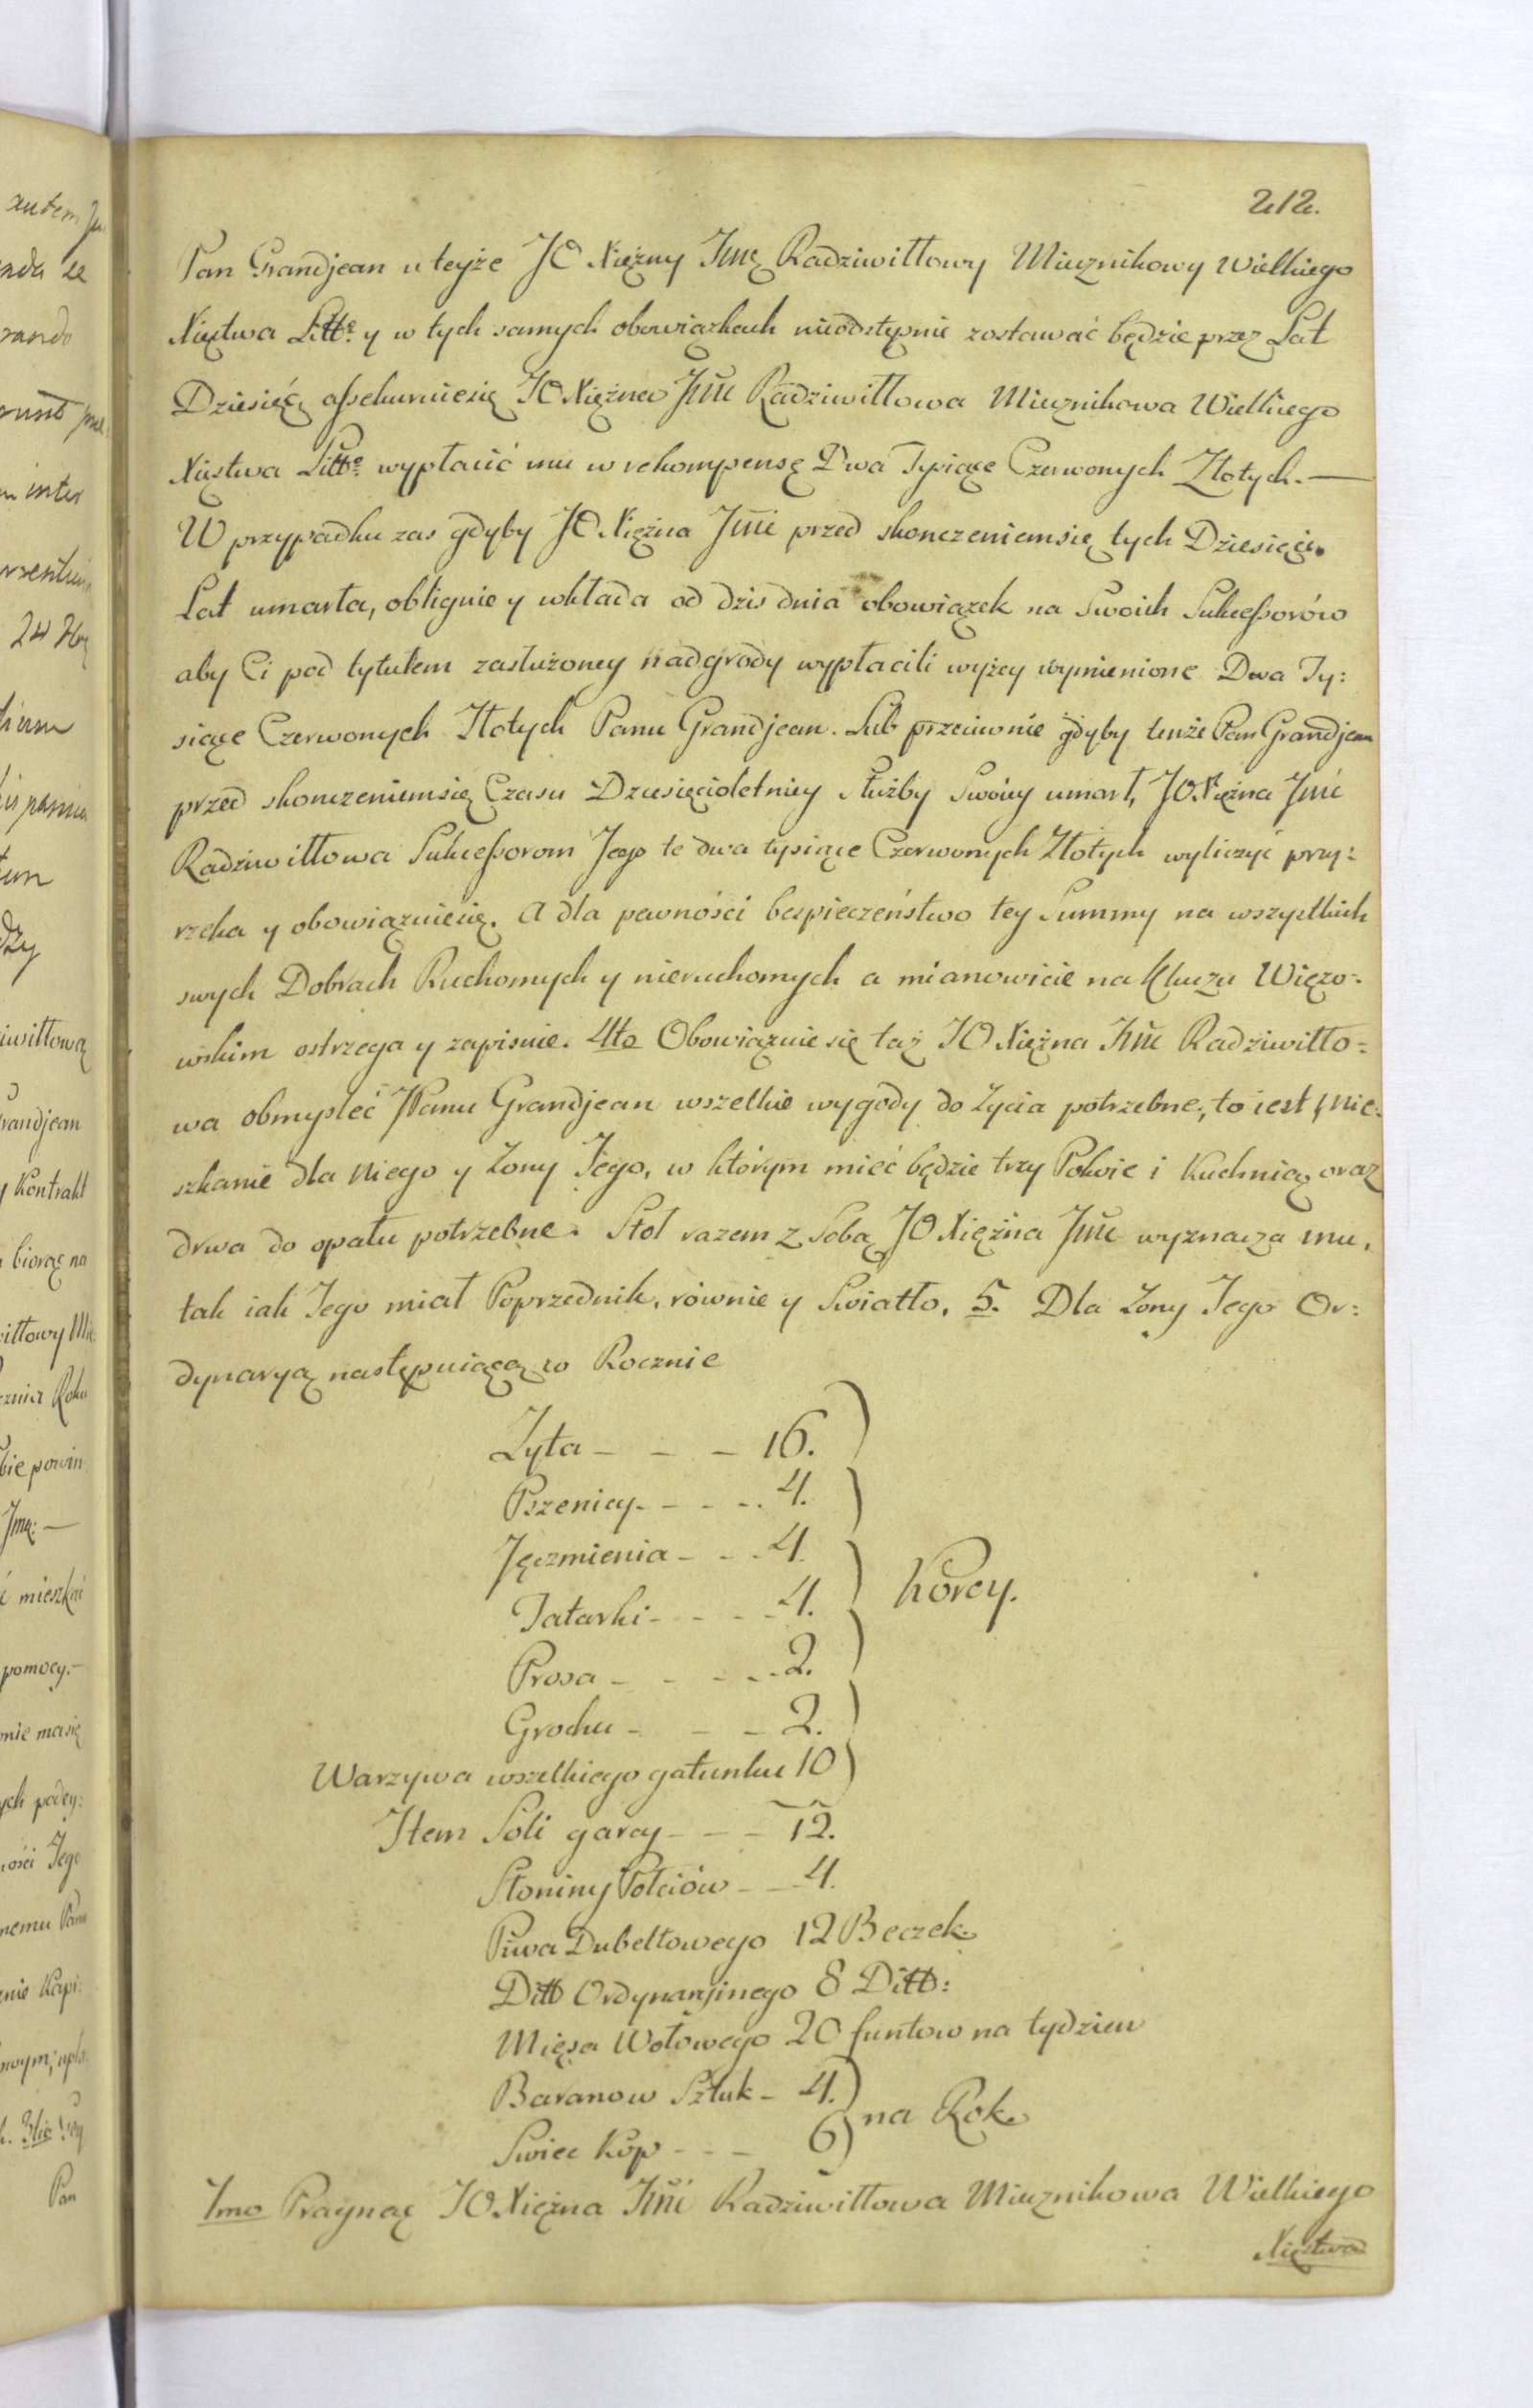 212.
Pan Grandjean u teyże JO Xiężny Jmę Radziwiłłowy Miecznikowy Wielkiego
Xięstwa Litt: y w tych samych obowiązkach nieodstępnie zostawać będzie przez Lat
Dziesięć, assekuruiesię JO Xiężna Jmć Radziwiłłowa Miecznikowa Wielkiego
Xięstwa Litt: wypłacić mu w rekompensę Dwa Tysiące Czerwonych Złotych. —
W przypadku zas gdyby JO Xiężna Jmć przed skonczeniemsię tych Dziesięciu
Lat umarła, obliguie y wkłada od dzis dnia obowiązek na Swoich Sukcessorów
aby Ci pod tytułem zasłużoney nadgrody wypłacili wyżey wymienione Dwa Ty:
siące Czerwonych Złotych Panu Grandjean. Lub przeciwnie gdyby tenże Pan Grandjean
przed skonczeniemsię Czasu Dziesięcioletniey Służby Swoiey umarł, JO Xiężna Jmć
Radziwiłłowa Sukcessorom Jego te dwa tysiące Czerwonych Złotych wyliczyć przy:
rzeka y obowiązuiesię. A dla pewności bespieczeństwo tey Summy na wszystkich
swych Dobrach Ruchomych y nieruchomych a mianowicie na Kluczu Więzo:
wskim ostrzega y zapisuie. 4to Obowiązuie się taż JO Xiężna Jmć Radziwiłło:
wa obmysleć JPanu Grandjean wszelkie wygody do życia potrzebne, to iest, mie:
szkanie dla niego y Żony Jego, w którym mieć będzie trzy Pokoie i Kuchnię oraz
drwa do opału potrzebne. Stoł razem z Sobą JO Xiężna Jmć wyznacza mu,
tak iak Jego miał Poprzednik, równie y Swiatło. 5. Dla Żony Jego Or:
dynaryą następuiącą w Rocznie
Żyta - - - 16.
Pszenicy - - - 4.
Jęczmienia - - - 4.
Tatarki - - - 4.
Korcy.
Prosa - - - 2.
Grochu - - - 2.
Warzywa wszelkiego gatunku 10
Item Soli garcy - - - 12.
Słoniny Połciów - - 4.
Piwa Dubeltowego 12 Beczek
Ditto Ordynaryinego 8 Ditto:
Mięsa Wołowego 20 funtow na tydzien
Baranow Sztuk - 4.
na Rok
Swiec Kop - - - 6
Imo Pragnąc JO Xiężna Jmć Radziwiłłowa Miecznikowa Wielkiego
Xięstwa